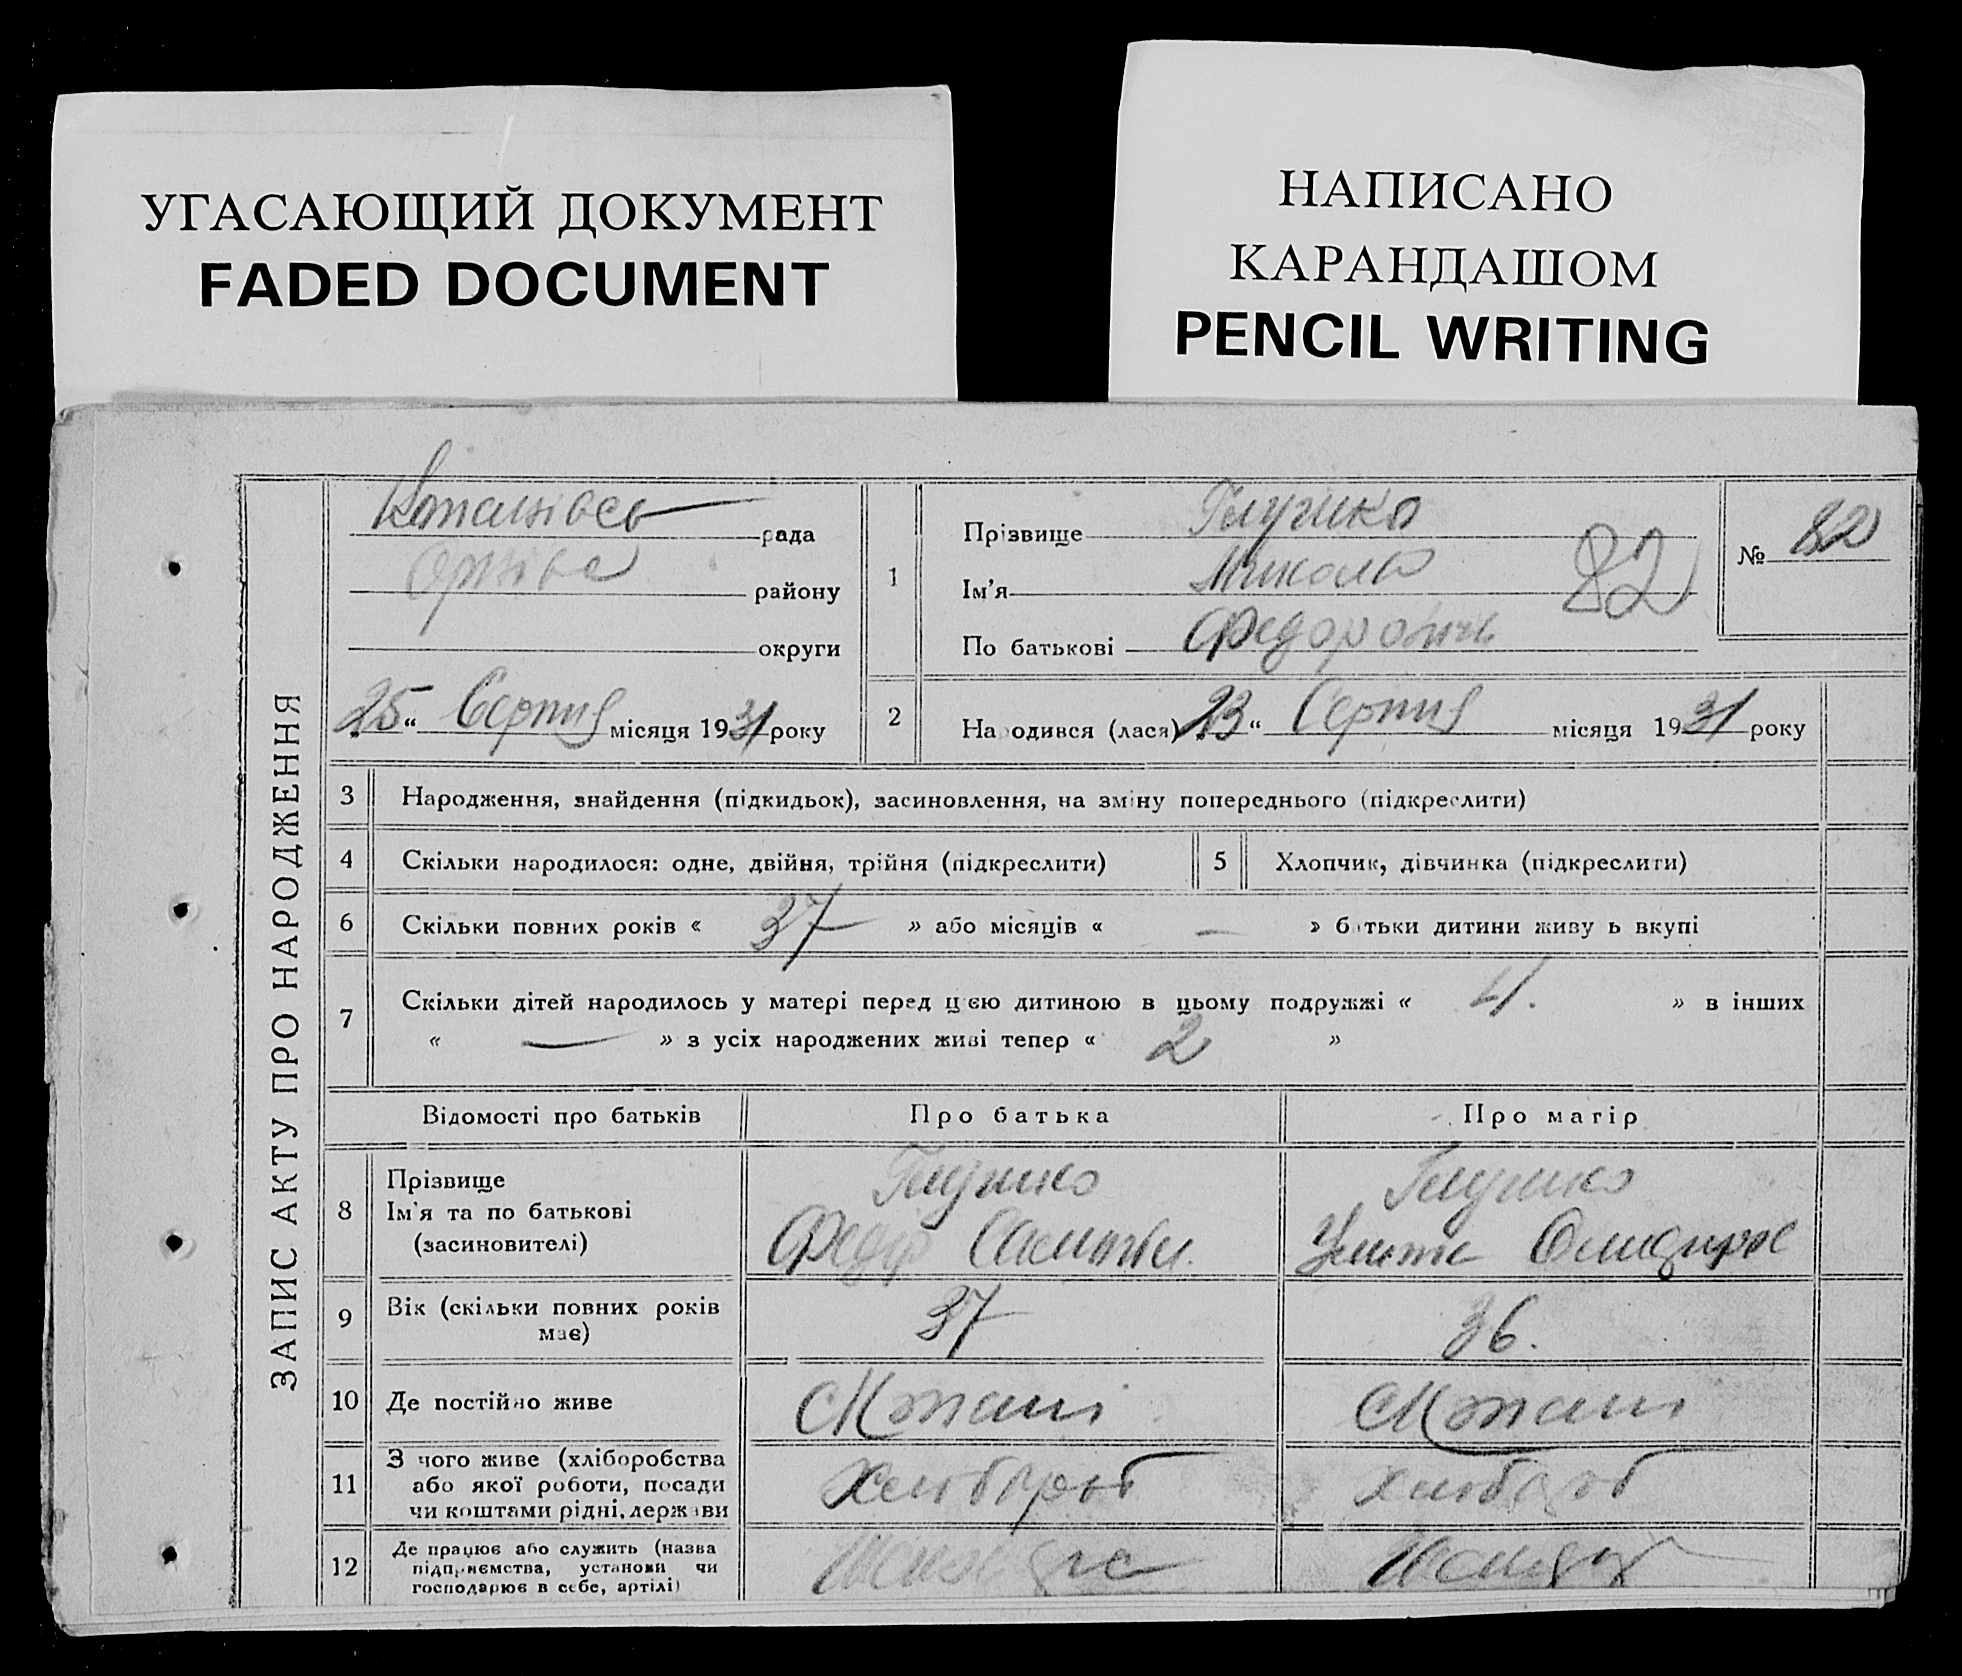 УГАСАЮЩИЙ ДОКУМЕНТ
FADED DOCUMENT
НАПИСАНО
КАРАНДАШОМ
PENCIL WRITING
ЗАПИС АКТУ ПРО НАРОДЖЕННЯ
рада
району
округи
25 “ Серпня місяця 1931 року
1
Прізвище Глушко
Ім'я Микола
По батькові Федорович
82
№ 82
2
Народився (лася) 23 “ Серпня місяця 1931 року
3 Народження, знайдення (підкидьок), засиновлення, на зміну попереднього (підкреслити)
4 Скільки народилося: одне, двійня, трійня (підкреслити)
5 Хлопчик, дівчинка (підкреслити)
6 Скільки повних років « 37 » або місяців « — » батьки дитини живуть вкупі
7 Скільки дітей народилось у матері перед цією дитиною в цьому подружжі « 4. » в інших
« — » з усіх народжених живі тепер « 2 »
Відомості про батьків Про батька Про матір
8 Прізвище Глушко Глушко
Ім'я та по батькові Федір
(засиновителі)
9 Вік (скільки повних років має) 37 36.
10 Де постійно живе
11 З чого живе (хліборобства
або якої роботи, посади
чи коштами рідні, держави
Хлібороб хлібороб
12 Де працює або служить (назва
підприємства, установи чи
господарює в себе, артілі)